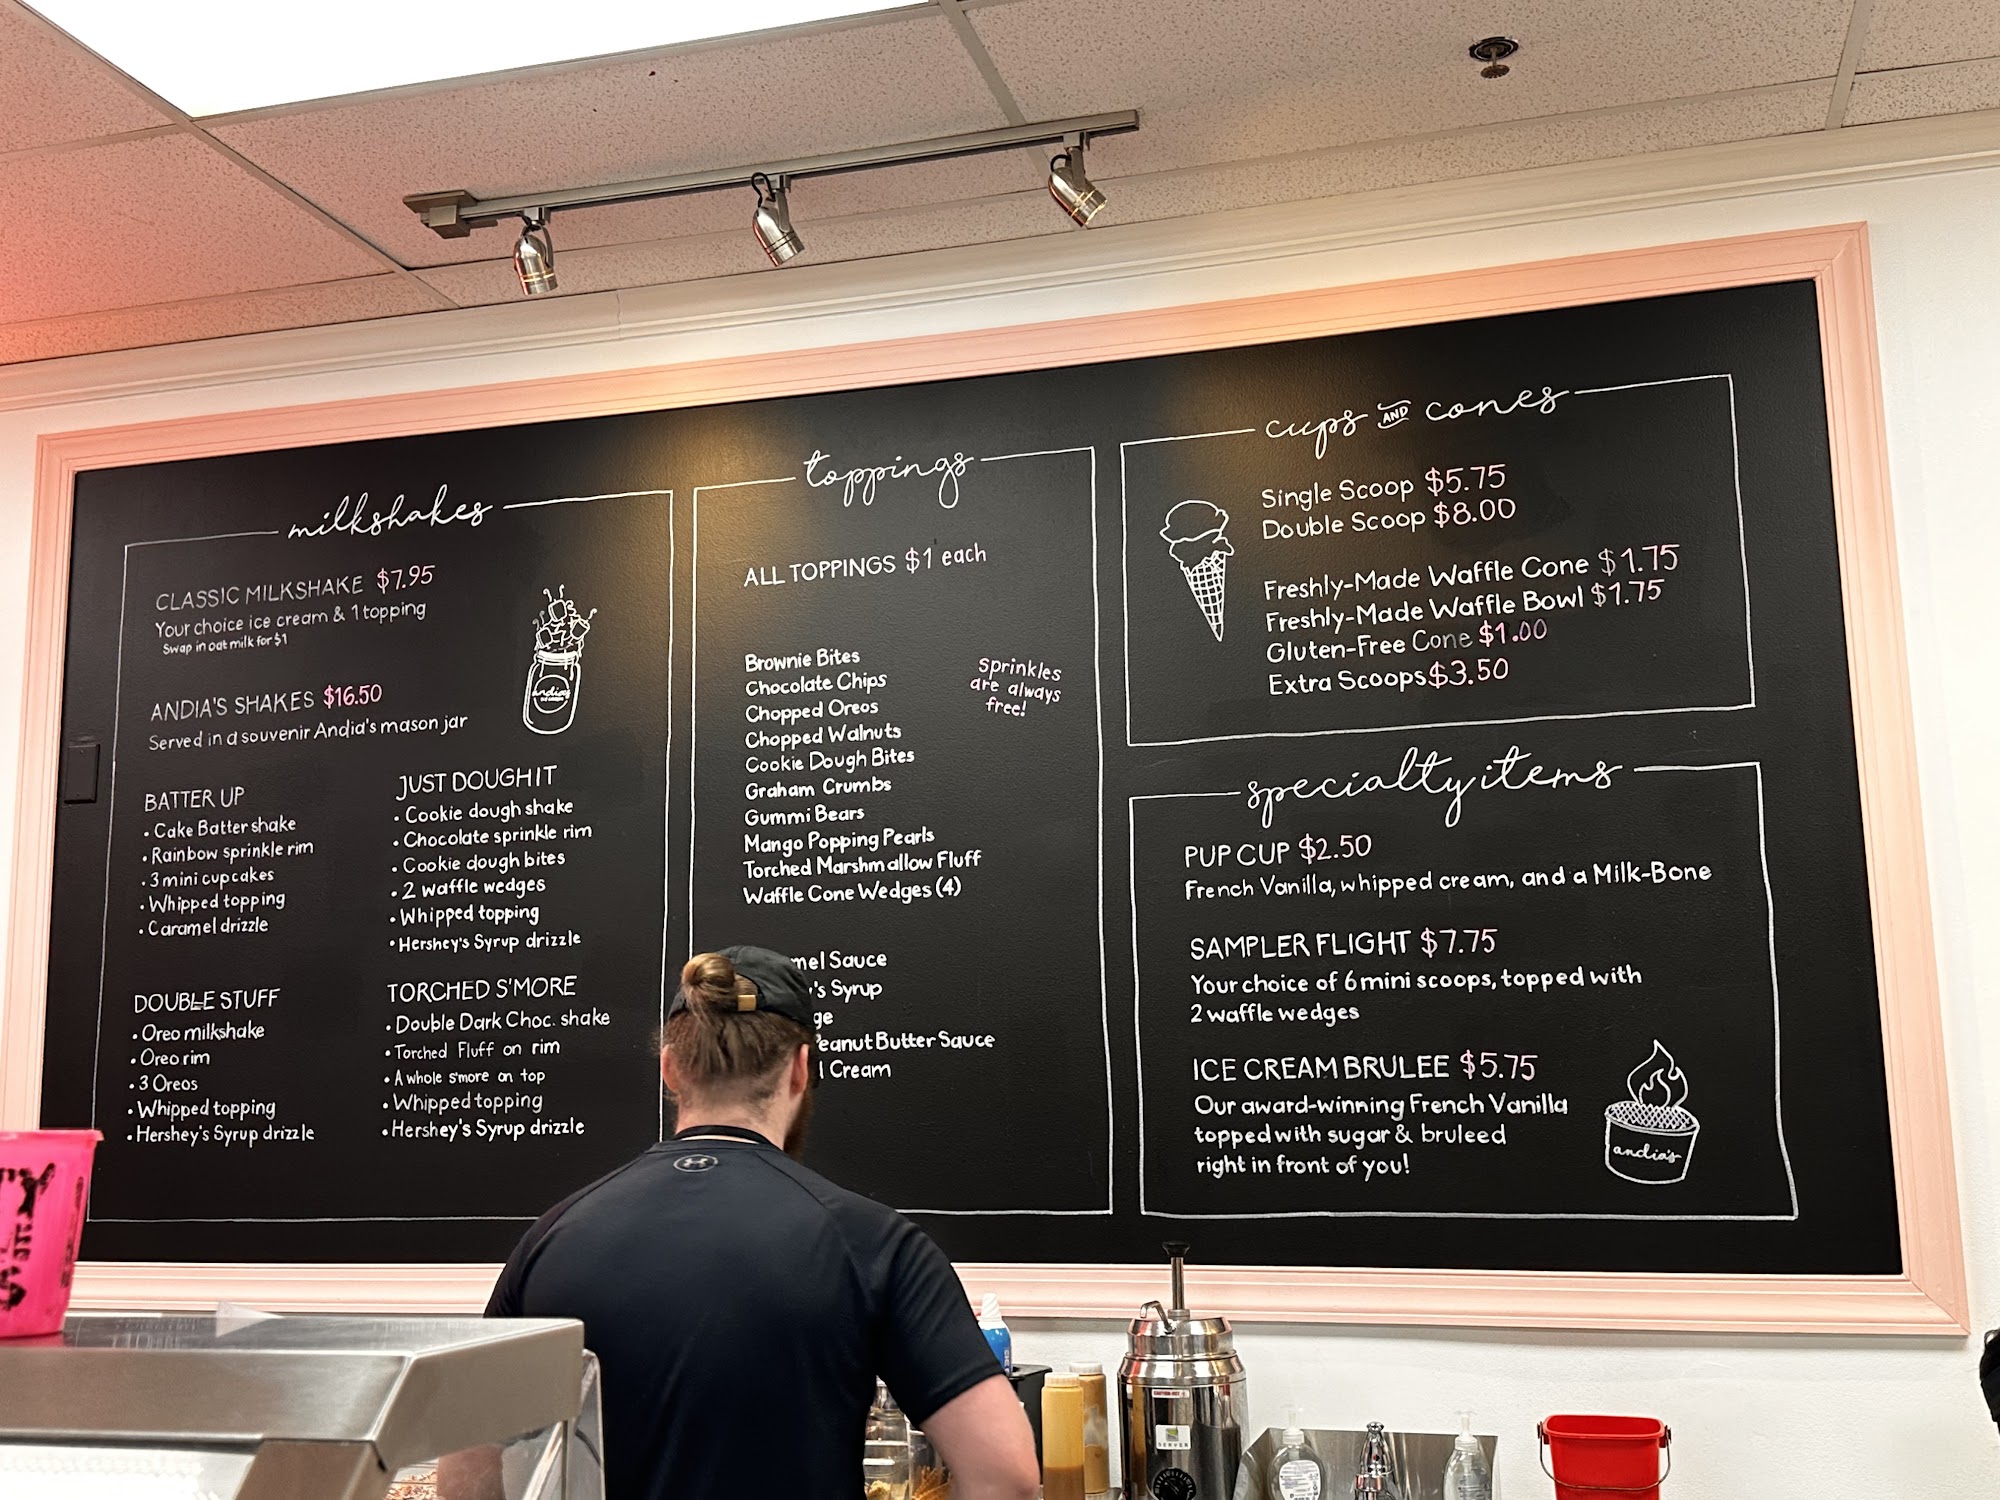 milkshakes
CLASSIC MILKSHAKE $7.95
Your choice ice cream & 1 topping
Swap in oat milk for $1
ANDIA'S SHAKES $16.50
Served in a souvenir Andia's mason jar
andia's
BATTER UP
• Cake Batter shake
• Rainbow sprinkle rim
• 3 mini cupcakes
• Whipped topping
• Caramel drizzle
JUST DOUGH IT
• Cookie dough shake
• Chocolate sprinkle rim
• Cookie dough bites
• 2 waffle wedges
• Whipped topping
• Hershey's Syrup drizzle
DOUBLE STUFF
• Oreo milkshake
• Oreo rim
• 3 Oreos
• Whipped topping
• Hershey's Syrup drizzle
TORCHED S'MORE
• Double Dark Choc. shake
• Torched Fluff on rim
• A whole s'more on top
• Whipped topping
• Hershey's Syrup drizzle
toppings
ALL TOPPINGS $1 each
Brownie Bites
Chocolate Chips
Chopped Oreos
Chopped Walnuts
Cookie Dough Bites
Graham Crumbs
Gummi Bears
Mango Popping Pearls
Torched Marshmallow Fluff
Waffle Cone Wedges (4)
sprinkles
are always
free!
mel Sauce
's Syrup
ge
Peanut Butter Sauce
Cream
cups AND cones
Single Scoop $5.75
Double Scoop $8.00
Freshly-Made Waffle Cone $1.75
Freshly-Made Waffle Bowl $1.75
Gluten-Free Cone $1.00
Extra Scoops $3.50
specialty items
PUP CUP $2.50
French Vanilla, whipped cream, and a Milk-Bone
SAMPLER FLIGHT $7.75
Your choice of 6 mini scoops, topped with
2 waffle wedges
ICE CREAM BRULEE $5.75
Our award-winning French Vanilla
topped with sugar & bruleed
right in front of you!
andia's
SERVER